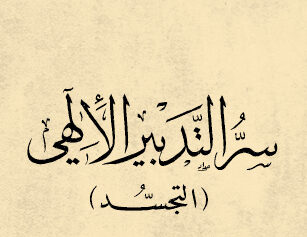 سِرُّ التَّدْبيرِ الأَلِهِيّ
(التجسُّد)